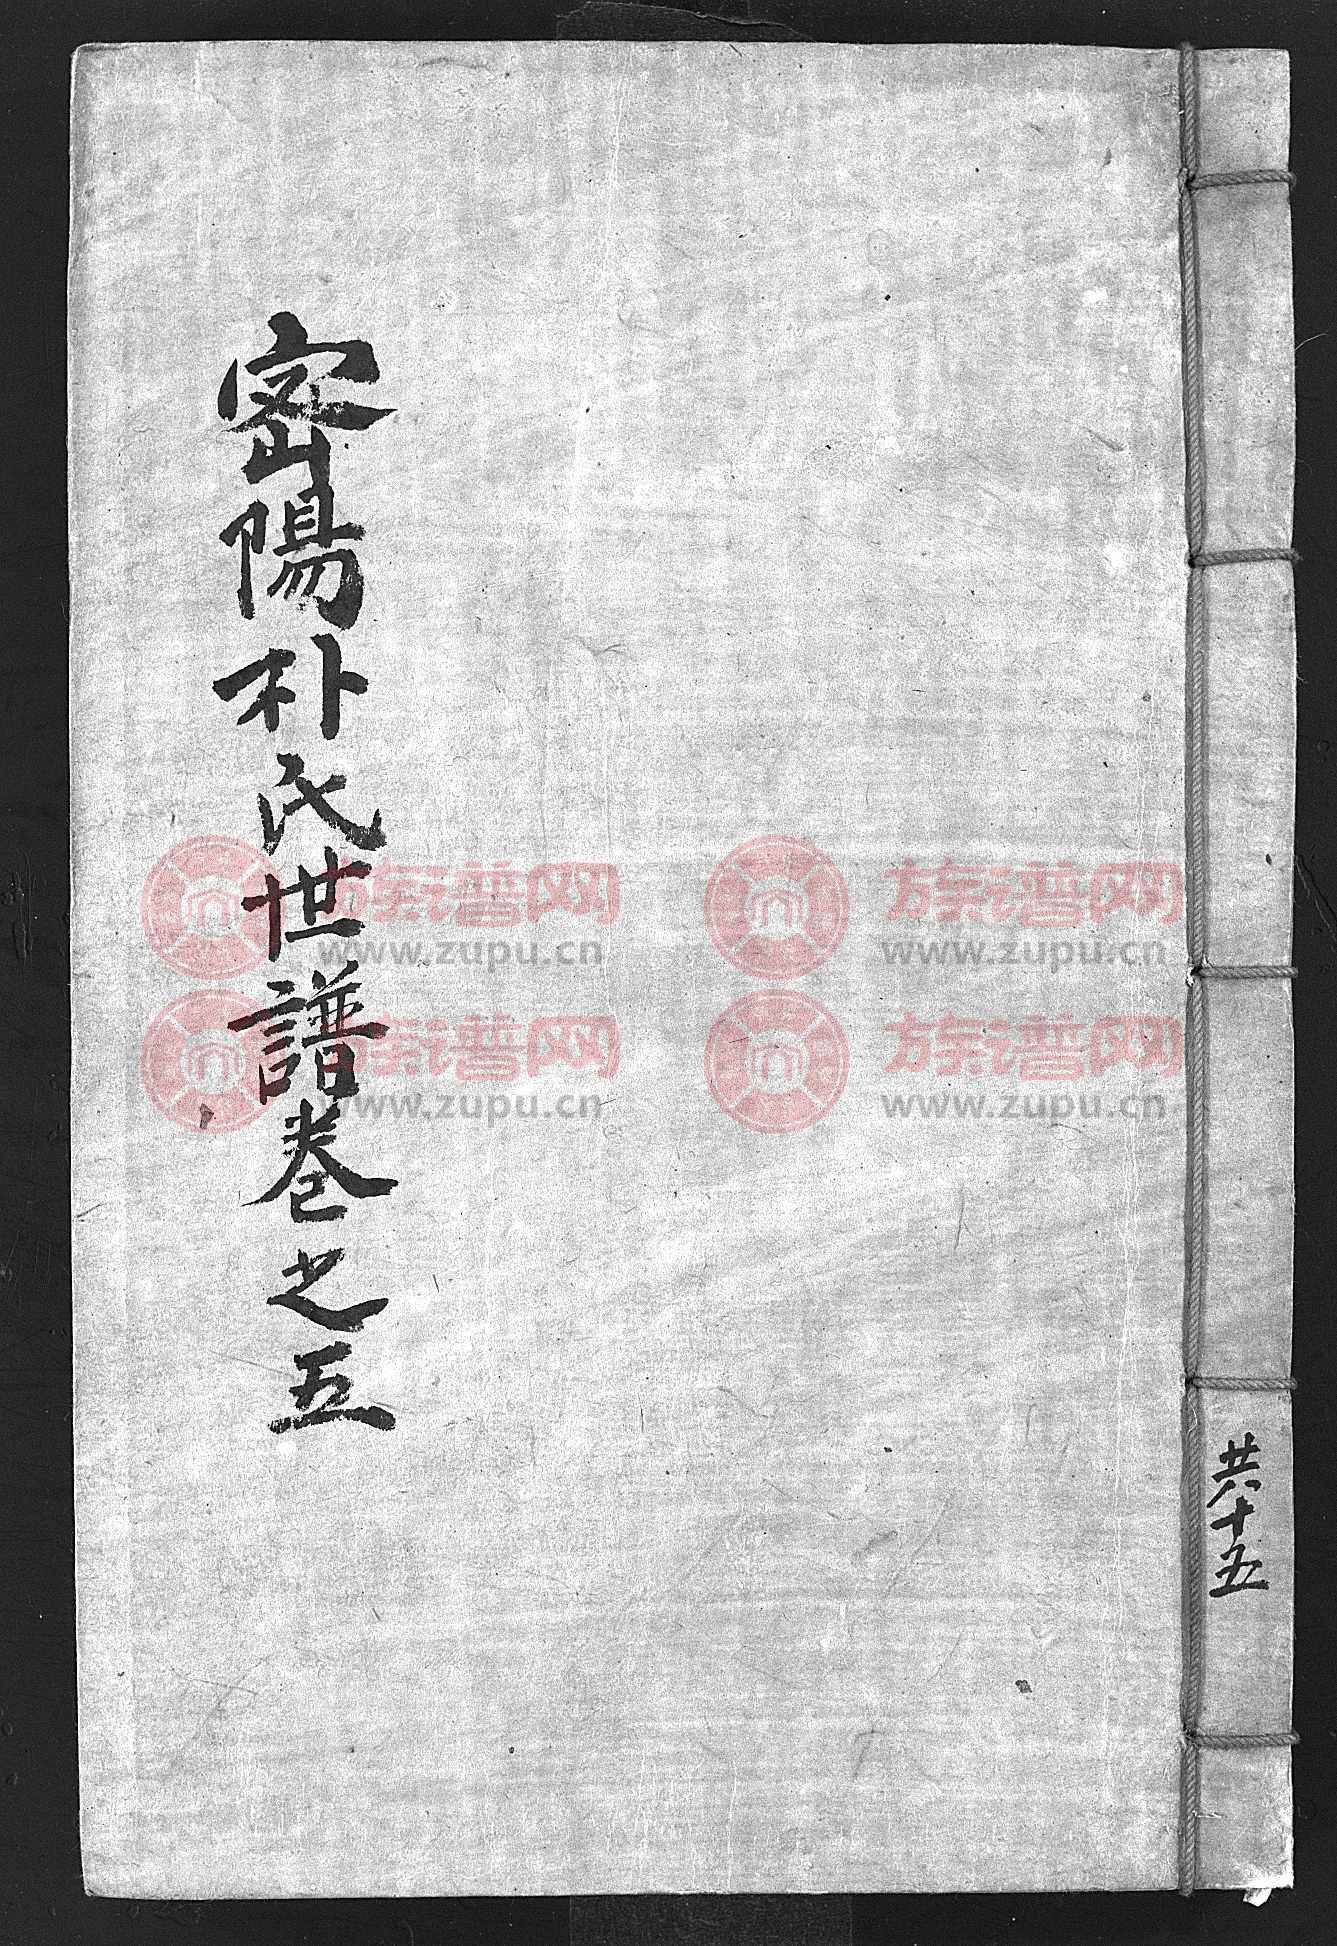 密陽朴氏世譜卷之五
共十五
族谱网
www.zupu.cn
族谱网
www.zupu.cn
族谱网
www.zupu.cn
族谱网
www.zupu.cn